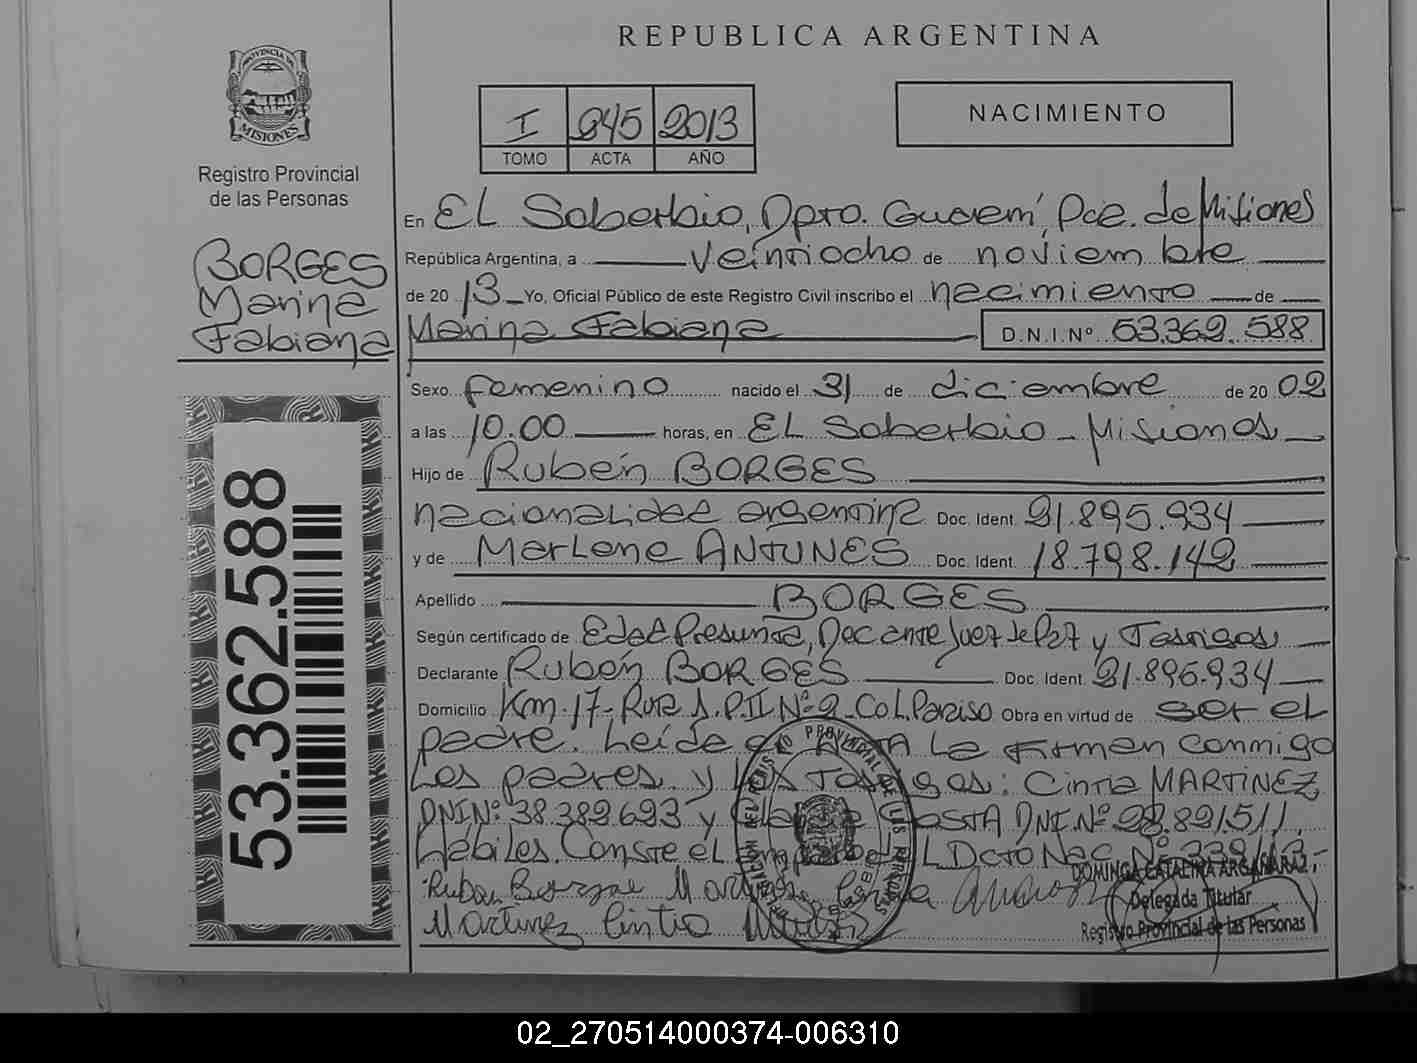 REPUBLICA ARGENTINA
PROVINCIA DE
MISIONES
Registro Provincial
de las Personas
I 245 2013
TOMO ACTA AÑO
NACIMIENTO
BORGES
Marina
Fabiana
En EL Soberbio, Dpto. Guaraní, Pcia. de Misiones
República Argentina, a veintiocho de noviembre
de 20 13 Yo, Oficial Público de este Registro Civil inscribo el nacimiento de
Marina Fabiana D.N.I.Nº 53.362.588
Sexo femenino nacido el 31 de diciembre de 20 02
a las 10.00 horas, en EL Soberbio - Misiones
Hijo de Rubén BORGES
nacionalidad argentina Doc. Ident. 21.895.934
y de Marlene ANTUNES Doc. Ident. 18.798.142
Apellido BORGES
Según certificado de Edad Presunta, Dec ante Juez de Paz y Testigos
Declarante Rubén BORGES Doc. Ident. 21.895.934
Domicilio Km.17-Ruta 1.P.II Nº 2-Col.Paraiso Obra en virtud de ser el
padre. Leída el ACTA La firman conmigo
Los padres y los Testigos: Cintia MARTINEZ
DNI Nº: 38.382.693 y COSTA DNI.Nº 28.821.511.
Hábiles. Conste el DCTO Nac Nº 339/13-
Ruben Borges
Martinez Cintia
DOMINGA CATALINA ARGAÑARAZ
Delegada Titular
Registro Provincial de las Personas
53.362.588
02_270514000374-006310